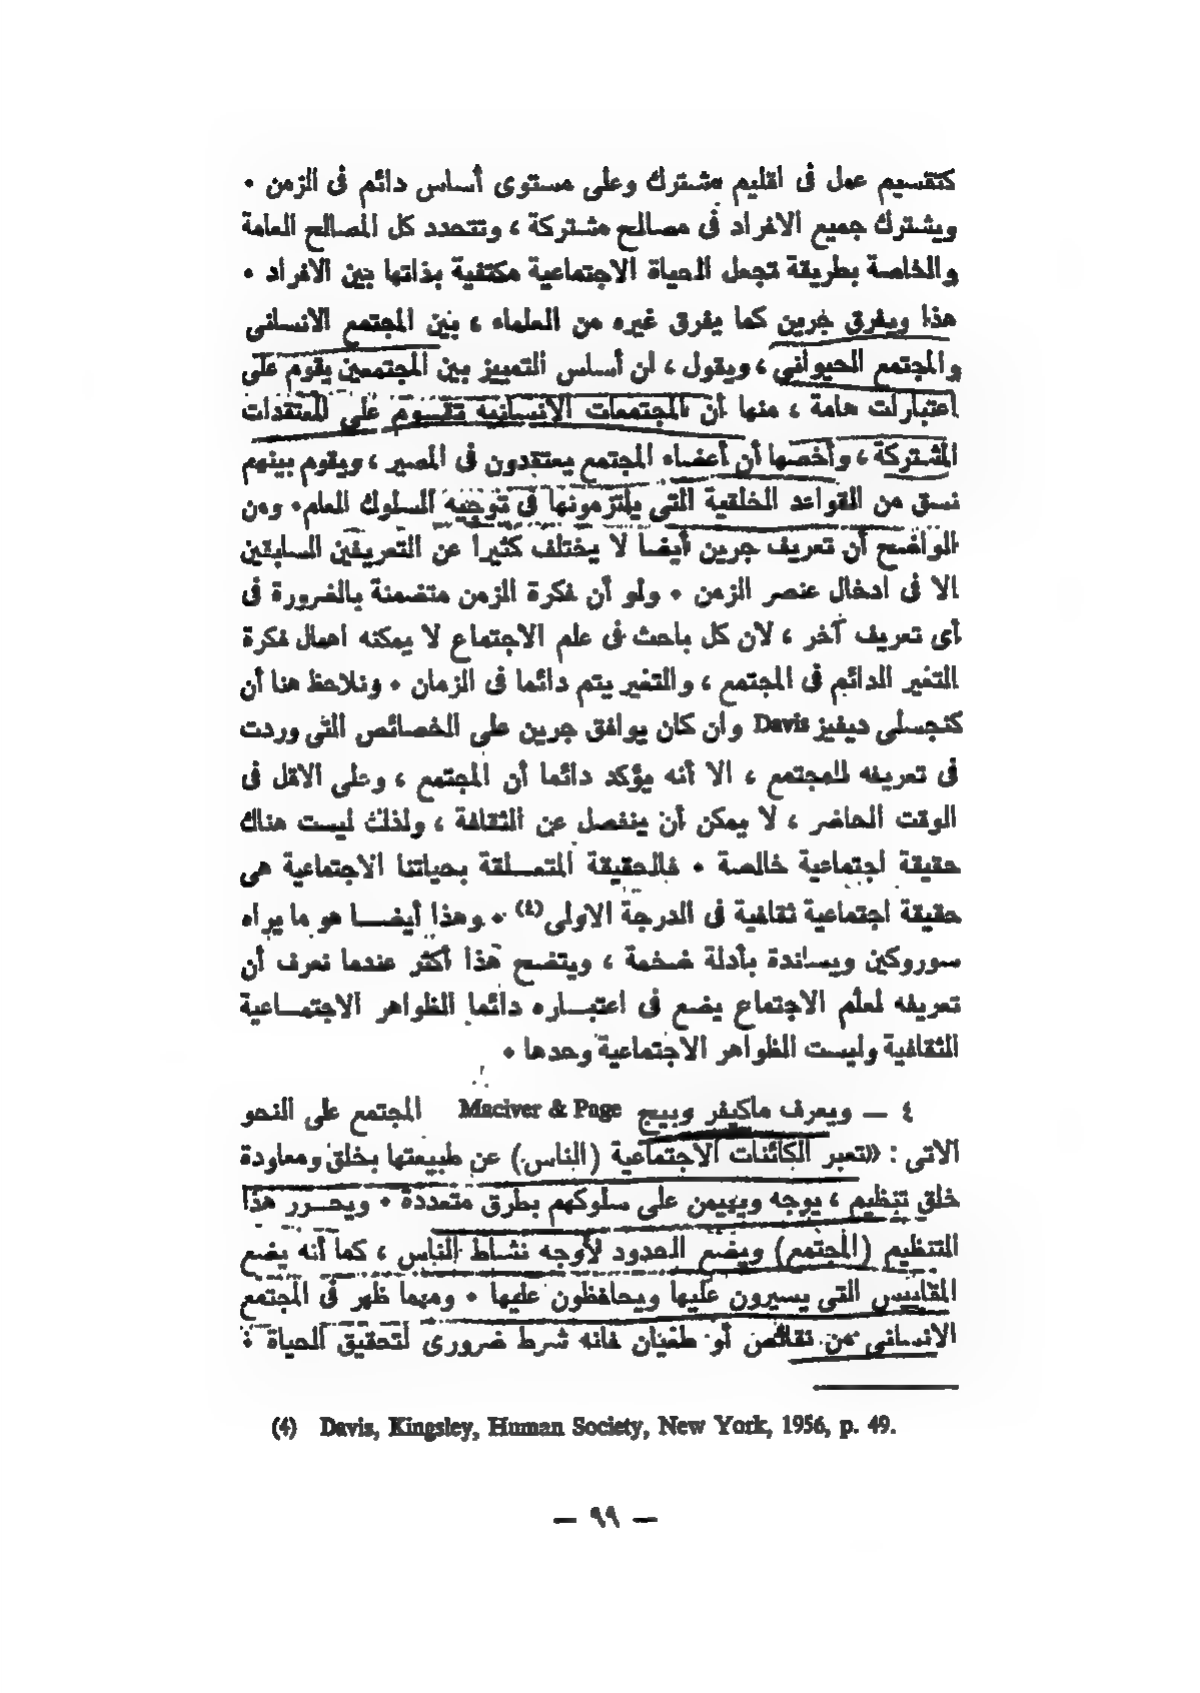 كتقسيم عمل فى اقليم مشترك وعلى مستوى أساس دائم فى الزمن •
ويشترك جميع الافراد فى مصالح مشتركة ، وتتحدد كل المصالح العامة
والخاصة بطريقة تجعل الحياة الاجتماعية مكتفية بذاتها بين الافراد •
هذا ويفرق جرين كما يفرق غيره من العلماء ، بين المجتمع الانسانى
والمجتمع الحيوانى ، ويقول ، ان أساس التمييز بين المجتمعين يقوم على
اعتبارات هامة ، منها أن المجتمعات الانسانية تقــوم على المعتقدات
المشتركة ، وأخصها أن أعضاء المجتمع يعتقدون فى المصير ، ويقوم بينهم
نسق من القواعد الخلقية التى يلتزمونها فى توجيه السلوك العام • ومن
الواضح أن تعريف جرين أيضا لا يختلف كثيرا عن التعريفين السابقين
الا فى ادخال عنصر الزمن • ولو أن فكرة الزمن متضمنة بالضرورة فى
أى تعريف آخر ، لان كل باحث فى علم الاجتماع لا يمكنه اهمال فكرة
التغير الدائم فى المجتمع ، والتغير يتم دائما فى الزمان • ونلاحظ هنا أن
كنجسلى ديفيز Davis وان كان يوافق جرين على الخصائص التى وردت
فى تعريفه للمجتمع ، الا أنه يؤكد دائما أن المجتمع ، وعلى الاقل فى
الوقت الحاضر ، لا يمكن أن ينفصل عن الثقافة ، ولذلك ليست هناك
حقيقة اجتماعية خالصة • فالحقيقة المتعــلقة بحياتنا الاجتماعية هى
حقيقة اجتماعية ثقافية فى الدرجة الاولى (٤) • وهذا أيضــا هو ما يراه
سوروكين ويساندة بأدلة ضخمة ، ويتضح هذا أكثر عندما نعرف أن
تعريفه لعلم الاجتماع يضع فى اعتبــاره دائما الظواهر الاجتمــاعية
الثقافية وليست الظواهر الاجتماعية وحدها •
٤ — ويعرف ماكيفر وبيج Maciver & Page المجتمع على النحو
الاتى : «تعبر الكائنات الاجتماعية (الناس) عن طبيعتها بخلق ومعاودة
خلق تنظيم ، يوجه ويهيمن على سلوكهم بطرق متعددة • ويحــرر هذا
التنظيم (المجتمع) ويضع الحدود لأوجه نشاط الناس ، كما أنه يضع
المقاييس التى يسيرون عليها ويحافظون عليها • ومهما ظهر فى المجتمع
الانسانى من نقائص أو طغيان فانه شرط ضرورى لتحقيق الحياة •
(4) Davis, Kingsley, Human Society, New York, 1956, p. 49.
— ٩٩ —